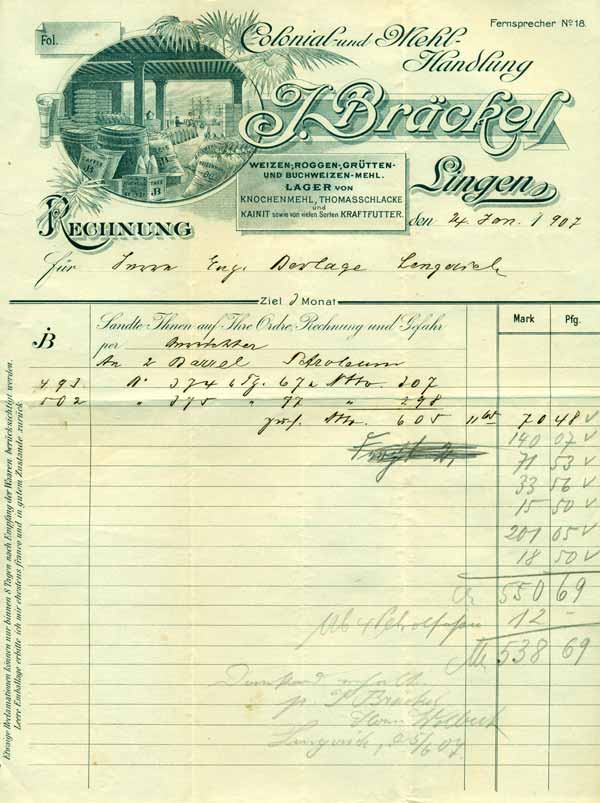 Fol.
Fernsprecher No 18.
Colonial- und Mehl-
Handlung
J. Bräckel
CAFFEE
JB
THEE
WEIZEN-, ROGGEN-, GRÜTTEN-
UND BUCHWEIZEN-MEHL.
LAGER VON
KNOCHENMEHL, THOMASSCHLACKE
und
KAINIT sowie von vielen Sorten KRAFTFUTTER.
Lingen,
RECHNUNG
den 24. Jan. 1907
für Herrn Eng. Berlage Lengerich
Ziel 3 Monat
Mark Pfg.
JB
Sandte Ihnen auf Ihre Ordre, Rechnung und Gefahr
per
An 2 Barrel Petroleum
493. 374 67 307
502 " 375 " 77 " 298
605 11 65 70 48
140 07
71 53
33 56
15 50
201 05
18 50
550 69
12 –
M 538 69
Dankend erhalten
p. J Bräckel
Lengerich, d 5/6 07.
Etwaige Reclamationen können nur binnen 8 Tagen nach Empfang der Waaren berücksichtigt werden.
Leere Emballage erbitte ich mir ehestens franco und in gutem Zustande zurück.